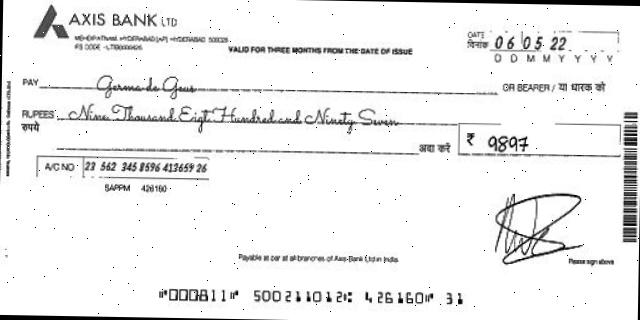 AXIS BANK LTD
MEHDIPATNAM, HYDERABAD [AP] HYDERABAD 500028
IFS CODE - UTIB0000426
VALID FOR THREE MONTHS FROM THE DATE OF ISSUE
DATE
दिनांक 06 05 22
D D M M Y Y Y Y
PAY Germa de Geus OR BEARER / या धारक को
RUPEES Nine Thousand Eigt Hundred and Ninety Seven
रुपये
अदा करें ₹ 9897
A/C NO 23 562 345 8596 413659 26
SAPPM 426160
Payable at par at all branches of Axis Bank Ltd in India
Please sign above
⑈000811⑈ 500211012⑆ 426160⑈ 31